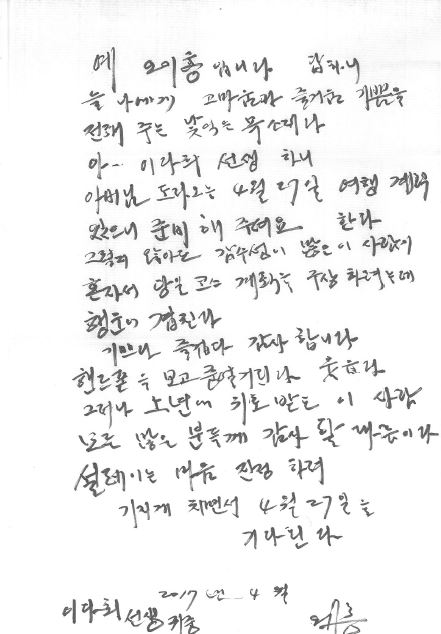 예 오이홍 입니다 답하니
늘 나에게 고마움과 즐거움 기쁨을
전해 주는 낯익은 목소리다
아… 이다희 선생 하니
아버님 도라오는 4월 27일 여행 계획
있으니 준비 해 주셔요 한다
그렇찌 않아도 감수성이 많은 이 사람이
혼자서 당일 코스 계획을 구상 하려는데
행운이 겹친다
기쁘다 즐겁다 감사 합니다
핸드폰을 보고 웃는다
그러나 노년에 위로 받는 이 사람
모든 많은 분들께 감사 할 뿐이다
설레이는 마음 진정 하려
기지개 치면서 4월 27일을
기다린다
2017 년 4 월
이다희 선생 귀중